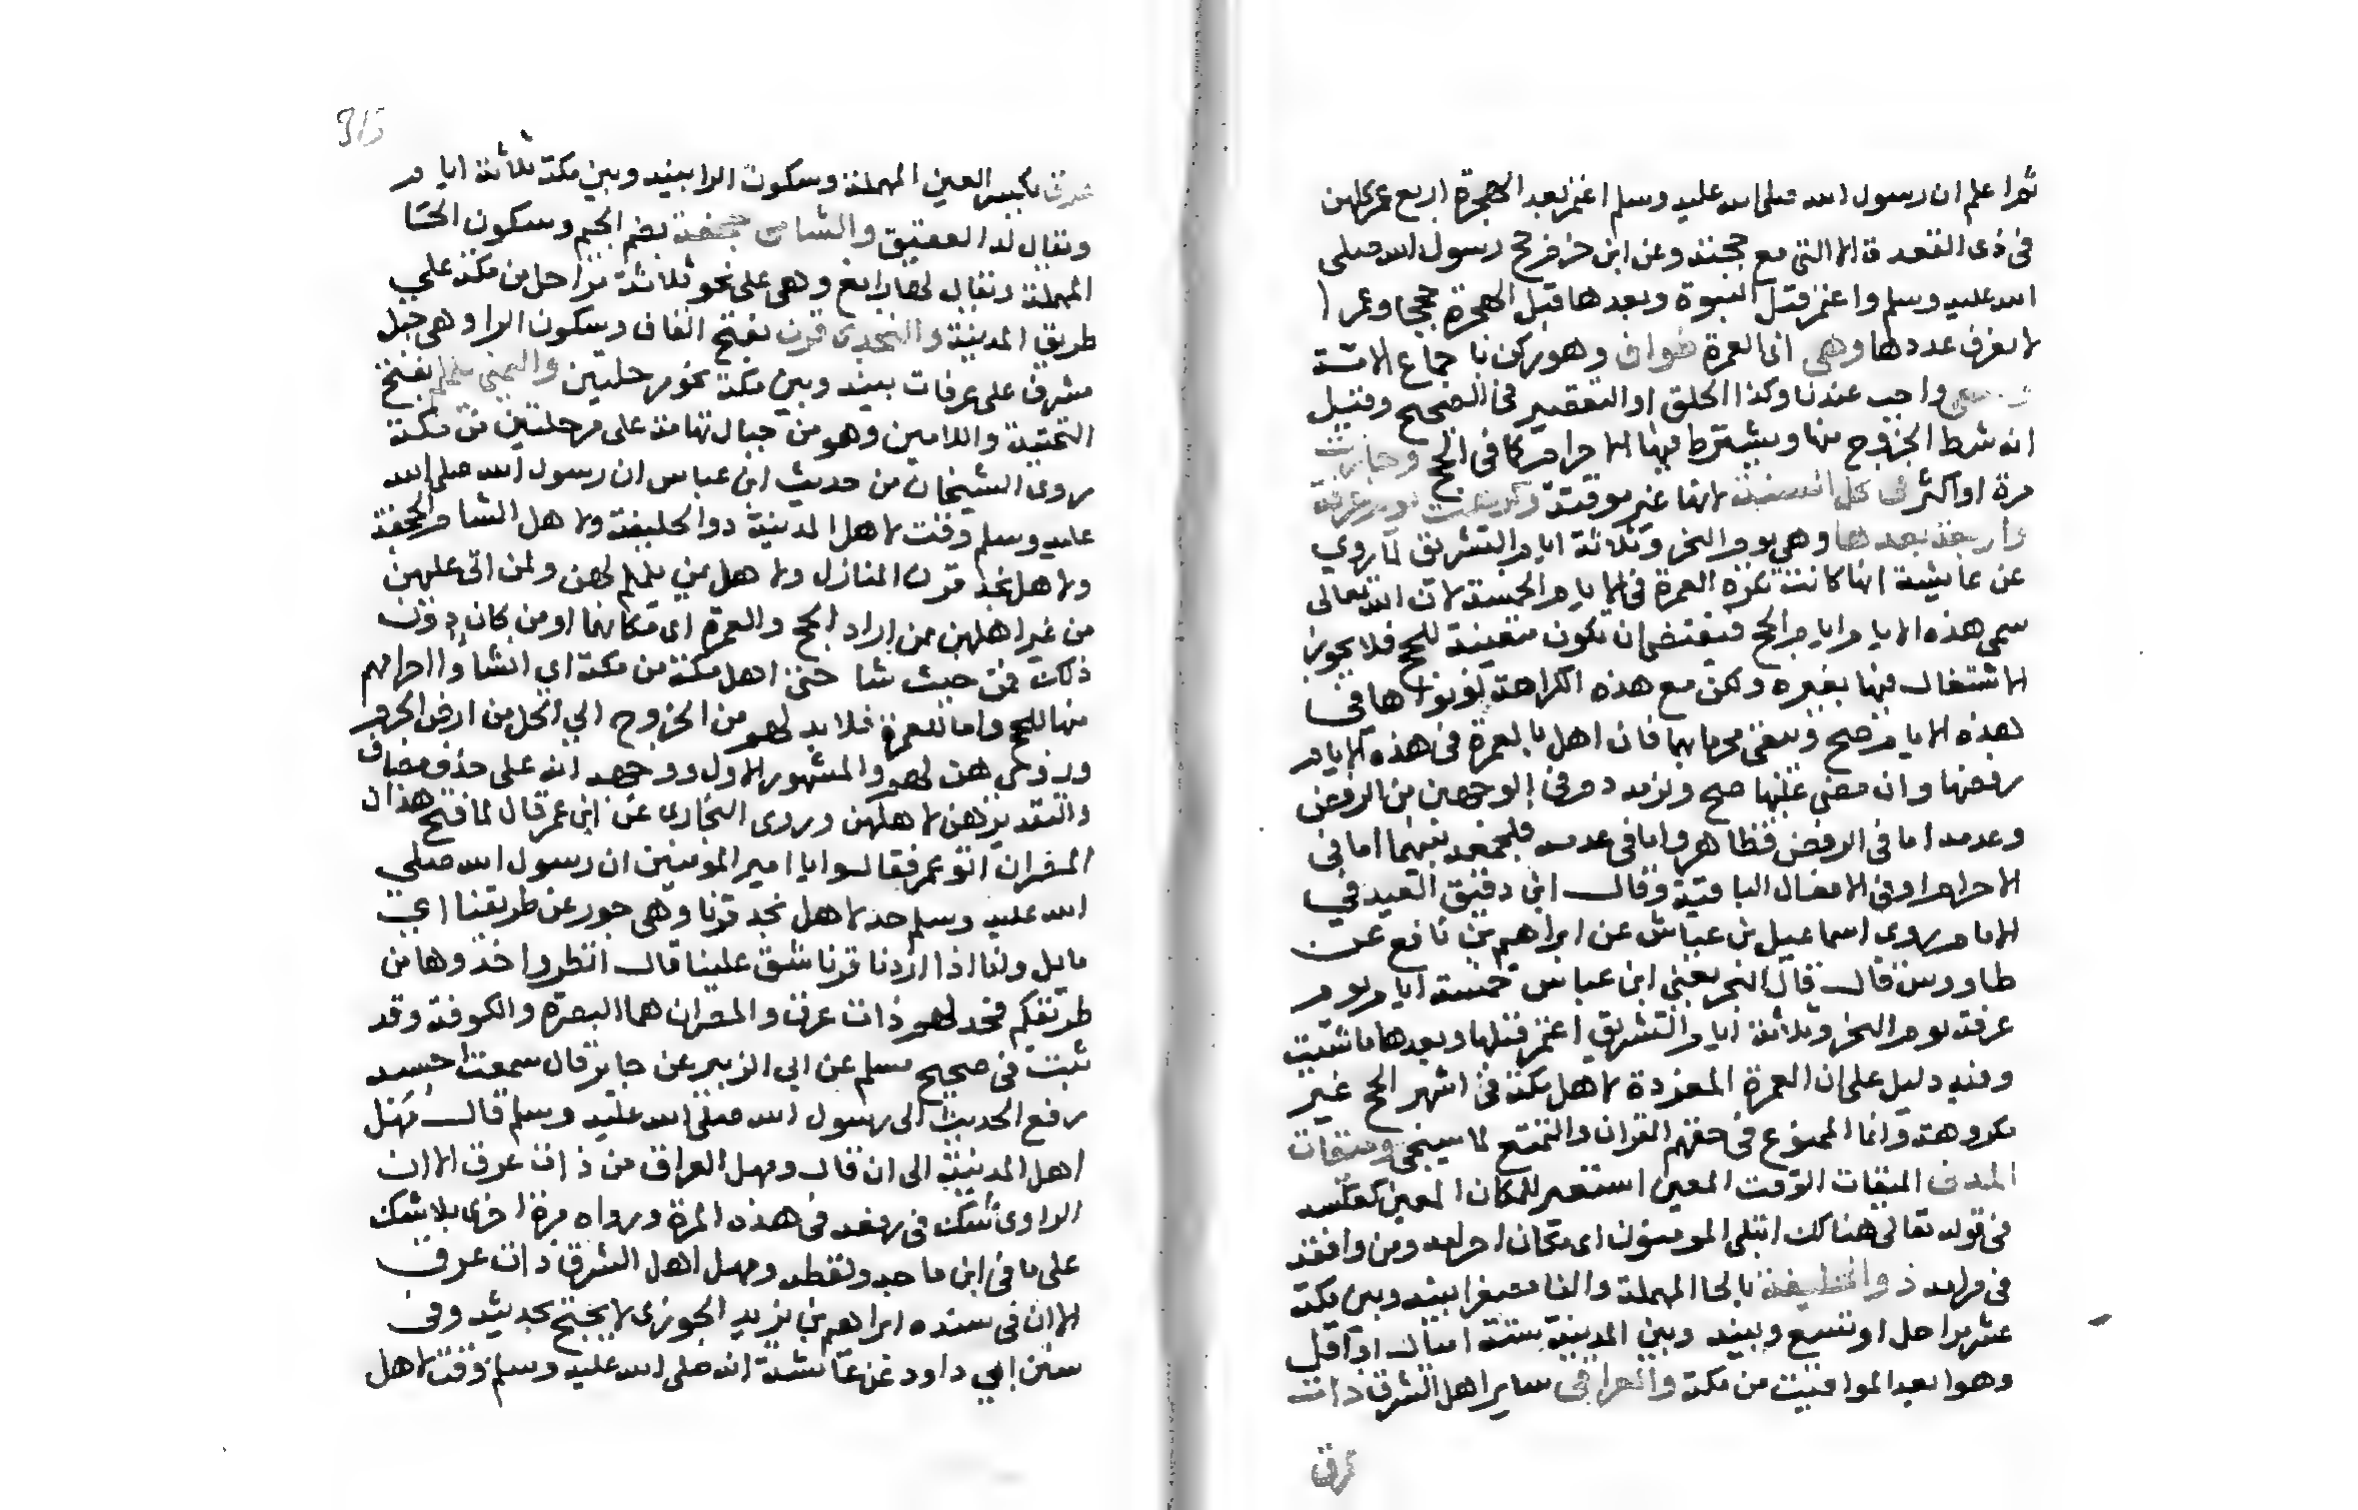 ثم اعلم ان رسول الله صلى الله عليه وسلم اعتمر بعد الهجرة اربع عمر كلهن
في ذي القعدة الا التي مع حجته وعن ابن حزم حج رسول الله صلى
الله عليه وسلم واعتمر قبل النبوة وبعدها قبل الهجرة حججا وعمرا
لا يعرف عددها وهي اى العمرة طواف وهو ركن باجماع الامة
وسعى واجب عندنا وكذا الحلق او التقصير في الصحيح وقيل
انه شرط الخروج منها ويشترط فيها الاحرام كما في الحج وجازت
مرة او اكثر في كل السنة لانها غير موقتة وكرهت يوم عرفة
واربعة بعدها وهي يوم النحر وثلاثة ايام التشريق لما روي
عن عايشة انها كانت تكره العمرة في الايام الخمسة لان الله تعالى
سمى هذه الايام ايام الحج فيقتضى ان تكون متعينة للحج فلا يجوز
الاشتغال فيها بغيره ولكن مع هذه الكراهة لو نواها في
هذه الايام صح ويبقى محرما بها فان اهل بالعمرة في هذه الايام
رفضها وان مضى عليها صح ولزمه دم في الوجهين من الرفض
وعدمه اما في الرفض فظاهر واما في عدمه فلجمعه بينهما اما في
الاحرام او في الافعال الباقية وقال ابن دقيق العيد في
الامام روى اسماعيل بن عياش عن ابراهيم بن نافع عن
طاووس قال قال البحر يعنى ابن عباس خمسة ايام يوم
عرفة يوم النحر وثلاثة ايام التشريق اعتمر قبلها وبعدها ما شيت
وفيه دليل على ان العمرة المفردة لاهل مكة في اشهر الحج غير
مكروهة وانما الممنوع في حقهم القران والتمتع لما سيجى وميقات
المدنى الميقات الوقت المعين استعير للمكان المعين كعكسه
في قوله تعالى هنالك ابتلى المومنون اى مكان احرامه ومن وافقه
في مرامه ذوالحليفة بالحا المهملة والفا مصغرا بينه وبين مكة
عشر مراحل او تسع وبينه وبين المدينة ستة اميال او اقل
وهو ابعد المواقيت من مكة والعراقى ساير اهل الشرق ذات
عرق
315
عرق بكسر العين المهملة وسكون الرا بينه وبين مكة ثلاثة ايام
ويقال له العقيق والشامى جحفة بضم الجيم وسكون الحا
المهملة ويقال لها رابغ وهي على نحو ثلاثة مراحل من مكة على
طريق المدينة والنجدى قرن بفتح القاف وسكون الرا وهى جبل
مشرف على عرفات بينه وبين مكة نحو مرحلتين واليمنى يلملم بفتح
التحتية واللامين وهو من جبال تهامة على مرحلتين من مكة
روى الشيخان من حديث ابن عباس ان رسول الله صلى الله
عليه وسلم وقت لاهل المدينة ذوالحليفة ولاهل الشام الجحفة
ولاهل نجد قرن المنازل ولاهل يمن يلملم لهن ولمن اتى عليهن
من غير اهلهن ممن اراد الحج والعمرة اى مكانها ومن كان دون
ذلك فمن حيث شا حتى اهل مكة من مكة اى انشاوا احرامهم
منها للحج واما للعمرة فلا بد لهم من الخروج الى الحل من ارض الحرم
وروى هن لهم والمشهور الاول ووجهه انه على حذف مضاف
والتقدير هن لاهلهن وروى البخارى عن ابن عمر قال لما فتح هذان
المصران اتو عمر فقالوا يا امير المومنين ان رسول الله صلى
الله عليه وسلم حد لاهل نجد قرنا وهى جور عن طريقنا اى
مايل وانا اذا اردنا قرنا شق علينا قال انظروا حذوها من
طريقكم فحد لهم ذات عرق والمصران هما البصرة والكوفة وقد
ثبت في صحيح مسلم عن ابى الزبير عن جابر قال سمعت احسبه
رفع الحديث الى رسول الله صلى الله عليه وسلم قال مهل
اهل المدينة الى ان قال ومهل العراق من ذات عرق الا ان
الراوى شك في رفعه في هذه المرة ورواه مرة اخرى بلا شك
على ما في ابن ماجه ولفظه ومهل اهل الشرق ذات عرق
الا ان في سنده ابراهيم بن يزيد الجوزى لا يحتج بحديثه وفي
سنن ابي داود عن عائشة انه صلى الله عليه وسلم وقت لاهل